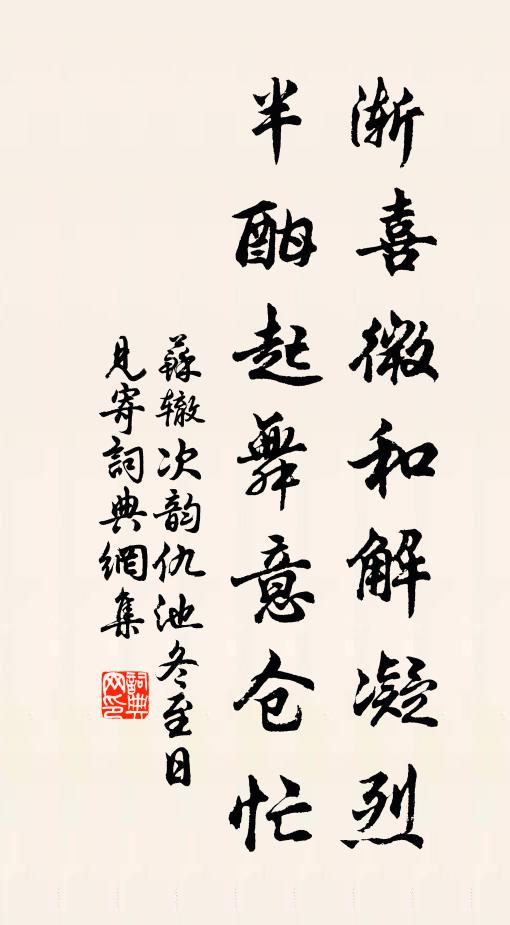 渐喜微和解凝烈
半酣起舞意仓忙
蘇辙次韵仇池冬至日
见寄詞典網集
詞典网印